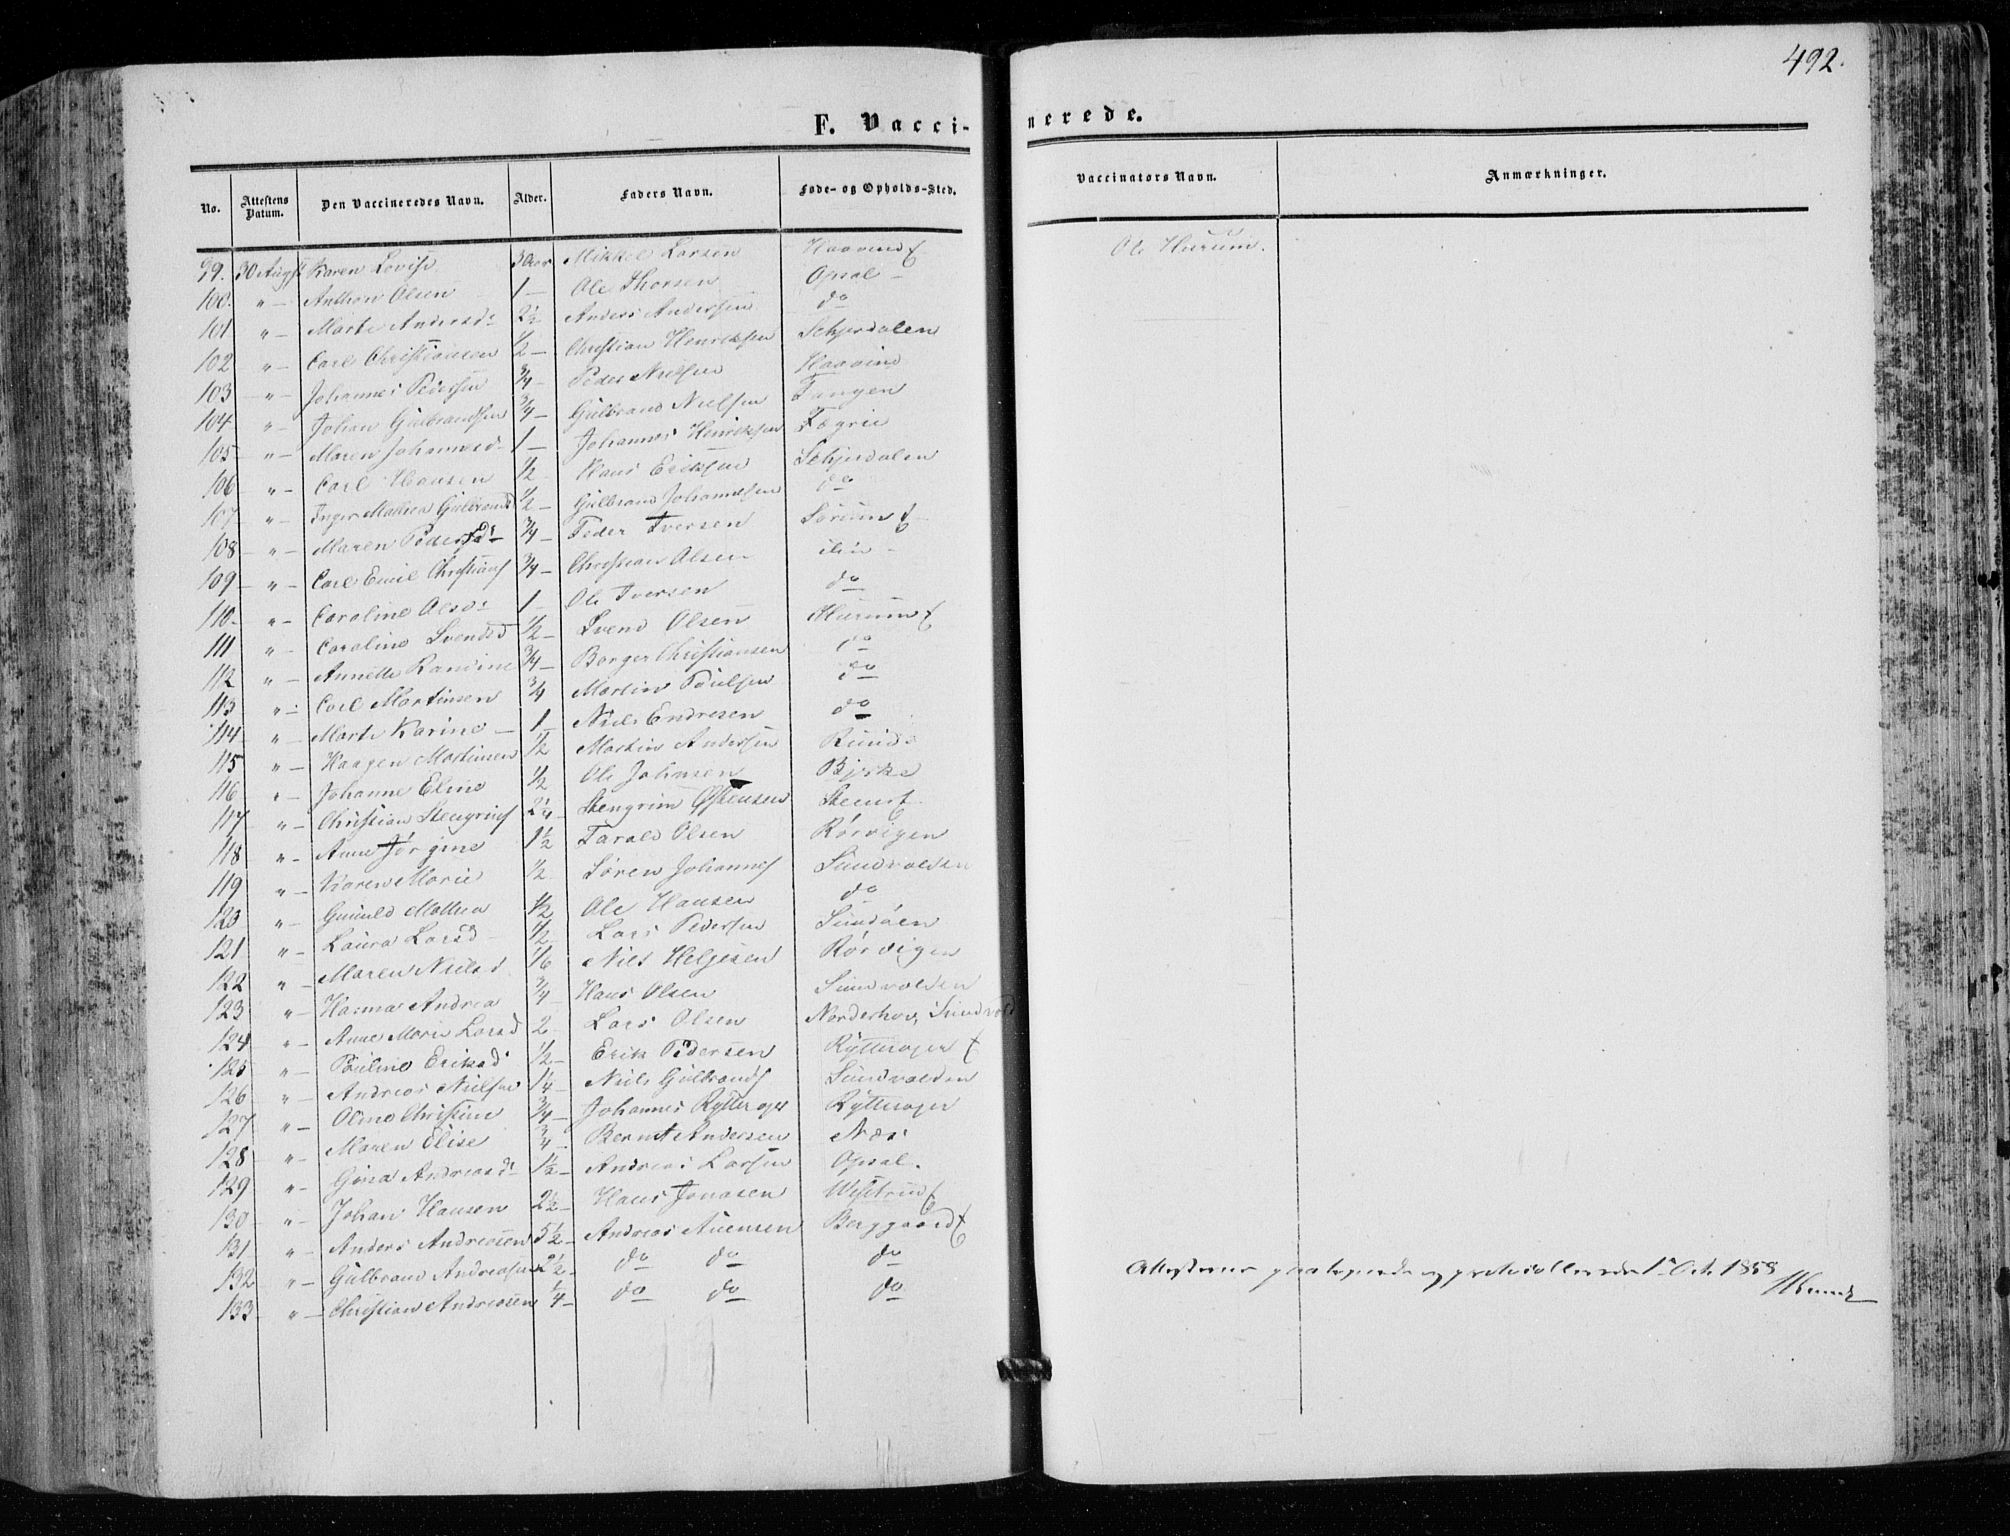 492.
F. Vaccinerede.
No. Attestens Datum. Den Vaccineredes Navn. Alder. Faders Navn. Føde- og Opholds-Sted. Vaccinators Navn. Anmærkninger.
99. 30 Augst Karen Lovise 3 Aar Mikkel Larsen Haavind Ole Hurum.
100. " — Anthon Olsen 1 — Ole Thorsen Opsal —
101 " — Marte Andersd: 2½ Anders Andersen do
102 " — Carl Christiansen ½ — Christian Henriksen Schjerdalen
103 " — Johannes Pedersen ¾ — Peder Nielsen Haavind
104 " — Johan Gulbrandsen ¾ — Gulbrand Nielsen Tangen
105 " — Maren Johannesd. 1 — Johannes Henriksen Fægrie
106 " — Carl Hansen ½ Hans Eriksen Schjerdalen
107 " — Inger Mathea Gulbrandsd ½ — Gulbrand Johannesen do
108 — " — Maren Pedersd: ¾ — Peder Iversen Sørum
109 — " — Carl Emil Christians ¾ — Christian Olsen
110. " — Caroline Olsd: 1 — Ole Iversen do
111 " — Caroline Svendsd ½ — Svend Olsen Hurum
112 " — Annette Randine ¾ — Borger Christiansen do
113 " — Carl Martinsen ¾ Martin Poulsen do
114 " — Marte Karine — 1 — Niels Endresen do
115 " — Haagen Martinsen ½ Martin Andersen Rund:
116 " — Johanne Eline ½ Ole Johnsen Bjerke
117 " — Christian Stengrims 2¼ — Stengrim Østensen Steens
118 " — Anne Jørgine 1½ Tarald Olsen Rørvigen
119 " — Karen Marie ½ Søren Johannes Sundvolden
123 " — Gunild Mathea ½ Ole Hansen do
121 " — Laura Larsd ½ Lars Pedersen Sundøen
122 " — Maren Nielsd. 1/6 Niels Helgesen Rørvigen
123 " — Hanna Andrea ¾ Hans Olsen Sundvolden
124 " — Anne Marie Larsd 2 — Lars Olsen Norderhov, Sundvold
125 " — Pauline Eriksd ½ — Erik Pedersen Rytterager
126 " — Andreas Nielsen 1¼ — Niels Gulbrands Sundvolden
127 " — Olina Christine ¾ — Johannes Rytterager Rytterager
128 " — Maren Elise ¾ — Bernt Andersen Næs
129 " — Gina Andreasd: 1½ — Andreas Larsen Opsal.
130 " — Johan Hansen 2½ — Hans Jonasen Westrum
131 " — Anders Andreasen 5½ — Andreas Auensen Berggaard
132 " — Gulbrand Andreasen 2½ — do do do
133 — " — Christian Andreasen ¼ — do do do
Attesterne protocollerede 1ste Octr 1858